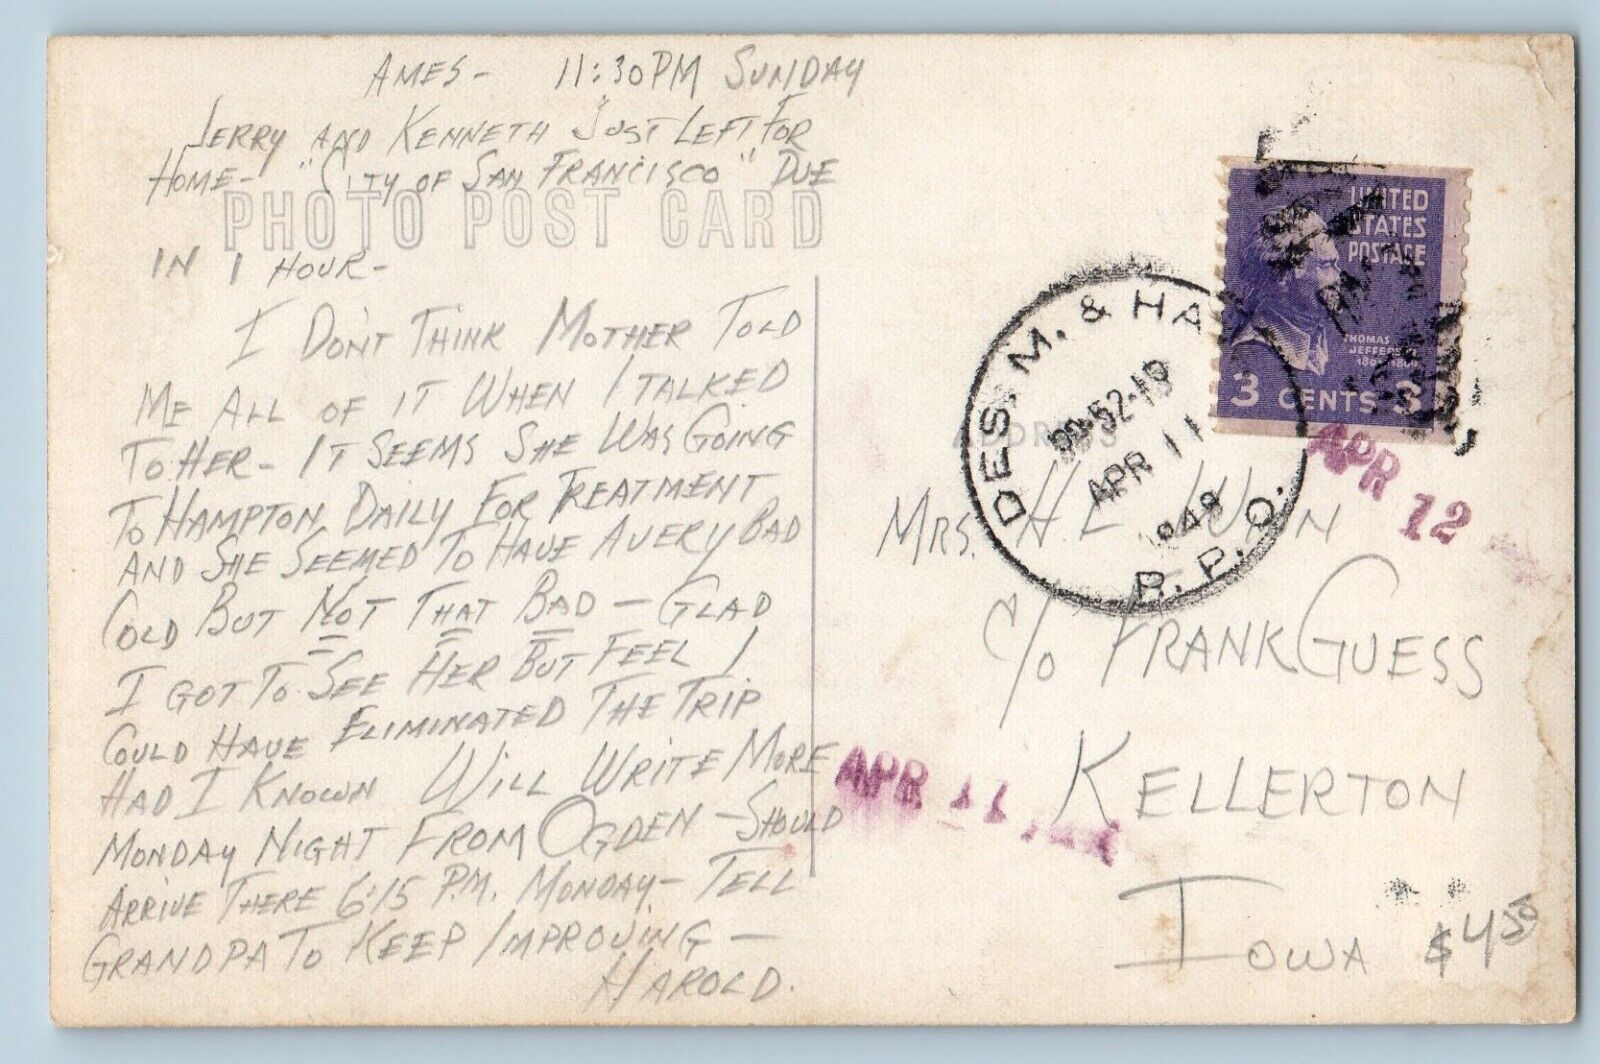 AMES- 11:30 PM SUNDAY
JERRY AND KENNETH JUST LEFT FOR
HOME- "CITY OF SAN FRANCISCO" DUE
PHOTO POST CARD
IN 1 HOUR-
I DON'T THINK MOTHER TOLD
ME ALL OF IT WHEN I TALKED
TO HER- IT SEEMS SHE WAS GOING
TO HAMPTON DAILY FOR TREATMENT
AND SHE SEEMED TO HAVE A VERY BAD
COLD BUT NOT THAT BAD - GLAD
I GOT TO SEE HER BUT FEEL I
COULD HAVE ELIMINATED THE TRIP
HAD I KNOWN WILL WRITE MORE
MONDAY NIGHT FROM OGDEN - SHOULD
ARRIVE THERE 6:15 P.M. MONDAY- TELL
GRANDPA TO KEEP IMPROVING -
HAROLD.
UNITED
STATES
POSTAGE
THOMAS
JEFFERSON
3 CENTS 3
DES. M. & HA
52-10
APR 11
1949
R. P. O.
ADDRESS
APR 12
MRS. H L
C/O FRANK GUESS
APR 11
KELLERTON
IOWA $4.50